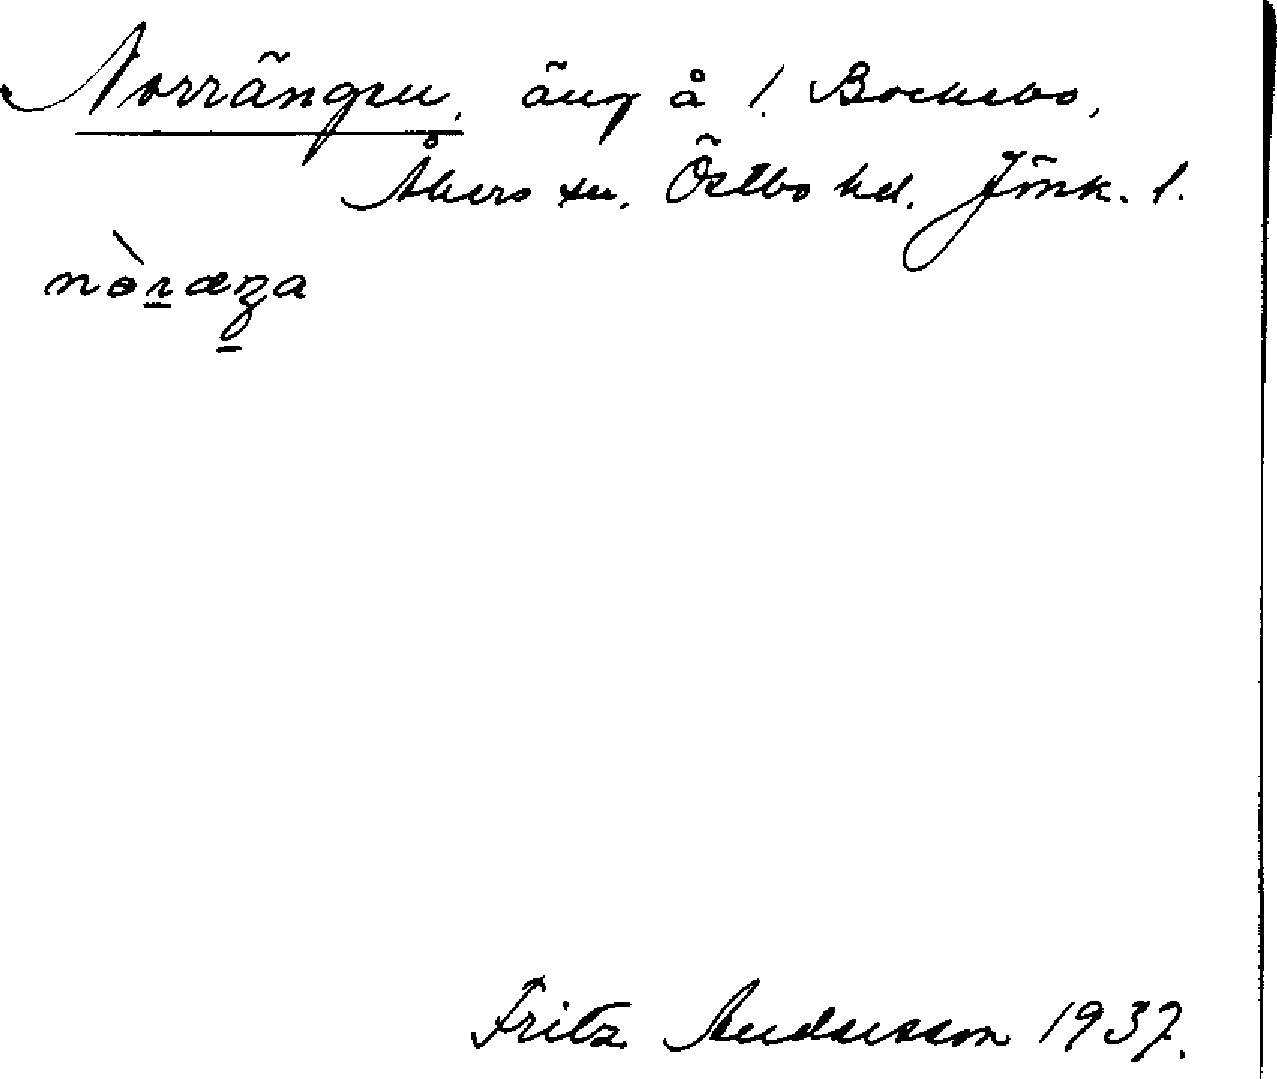 Norrängen, äng å 1 Bockebo,
Åkers sn. Östbo hd. Jönk. l.
nòræŋa
Fritz Andersson 1937.